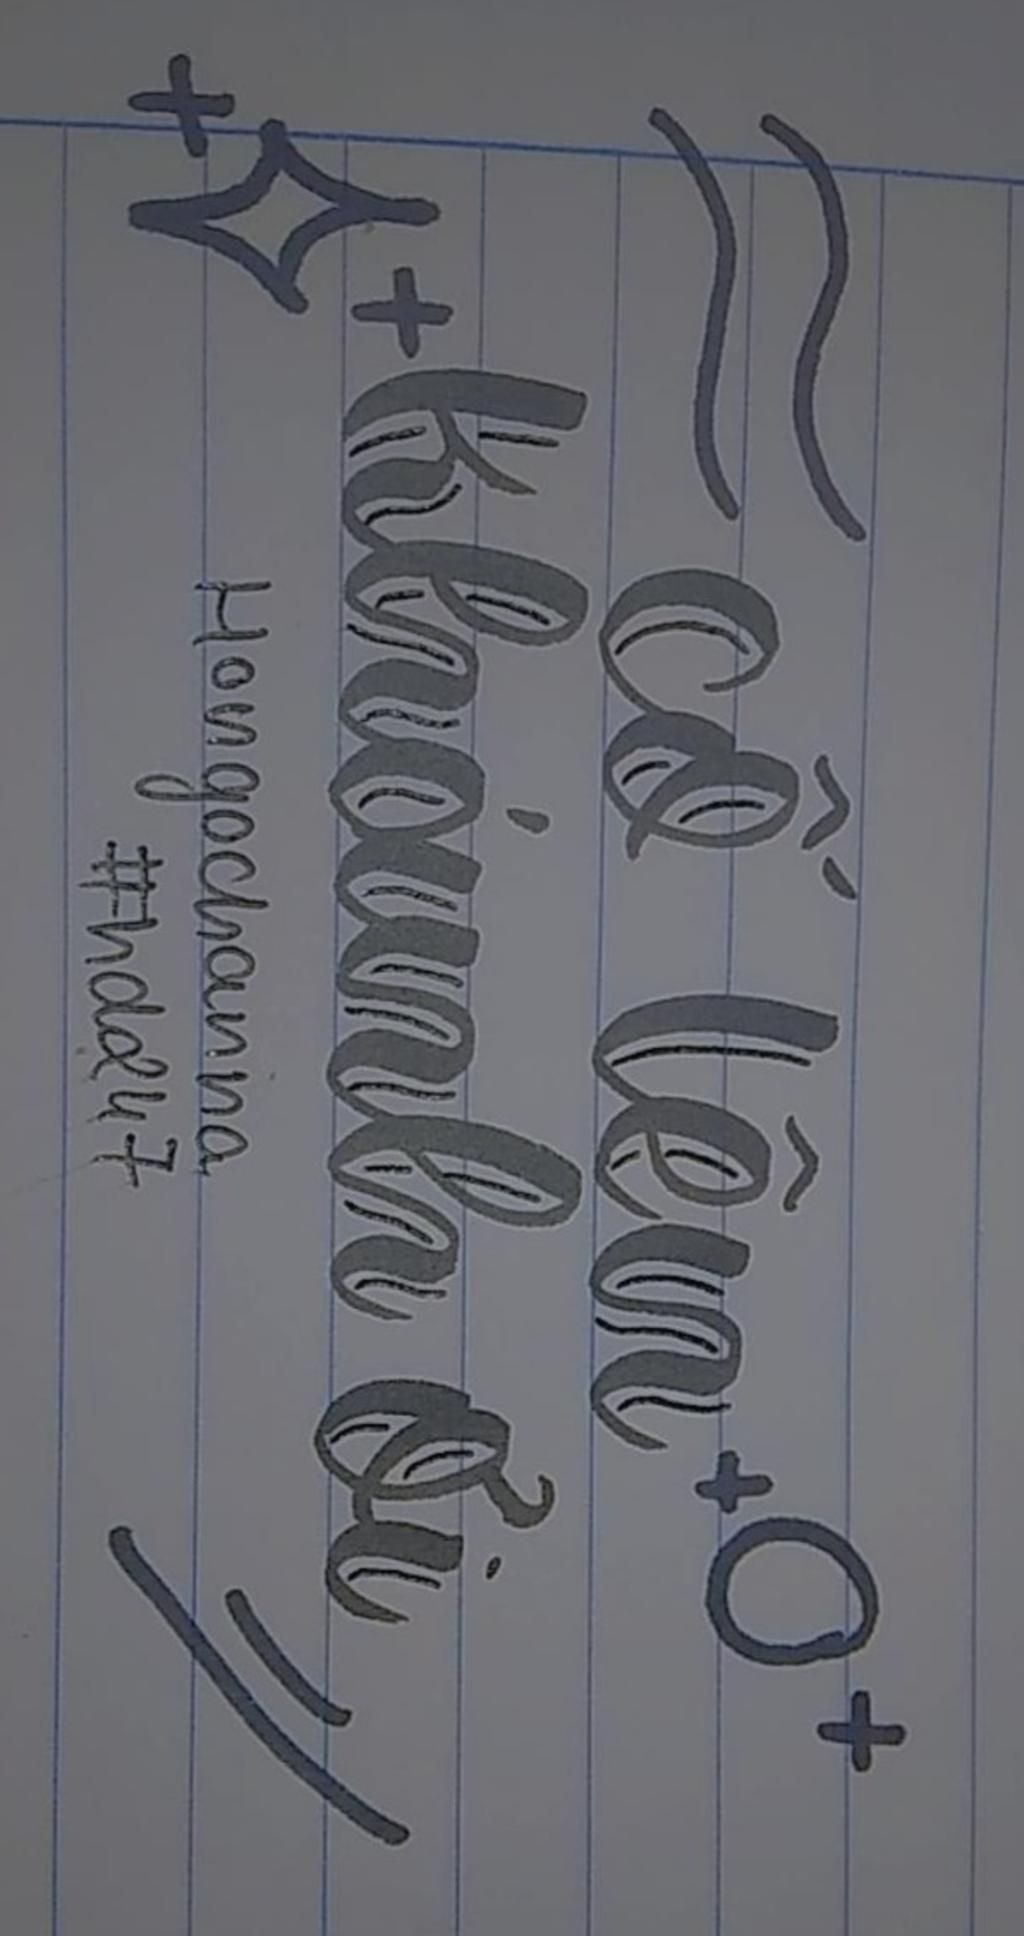 Cố lên
khánh ơi
Hongochanna
#hdd247